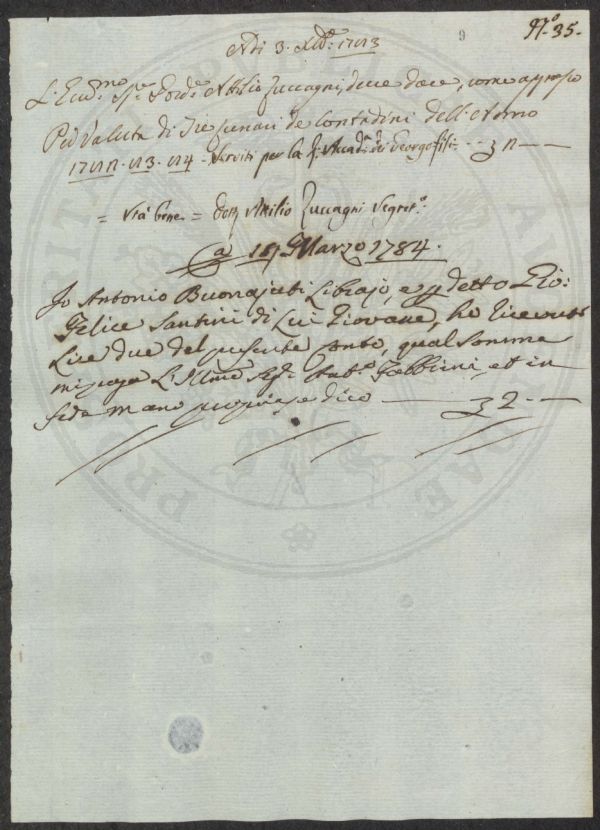 9
N.º 35.
Adi 3. Xbre: 1783
L'Eccmo. Sigre. Dottre. Attilio Zuccagni, deve dare, come appresso
Per Valuta di Tre Lunari de Contadini dell'Anno
1782. 83. 84 - Serviti per la Accad.a dei Georgofili -
= Và bene = Dott. Attilio Zuccagni Segret.º
Marzo 1784.
Io Antonio Buonajuti Librajo, e p detto Gio:
Felice Santini di Lui Giovane, ho ricevuto
Lire due del presente conto, qual somma
mi paga L'Illmo Sigr. Antº. Gabbrini, et in
fede mano propria dico — 2. —